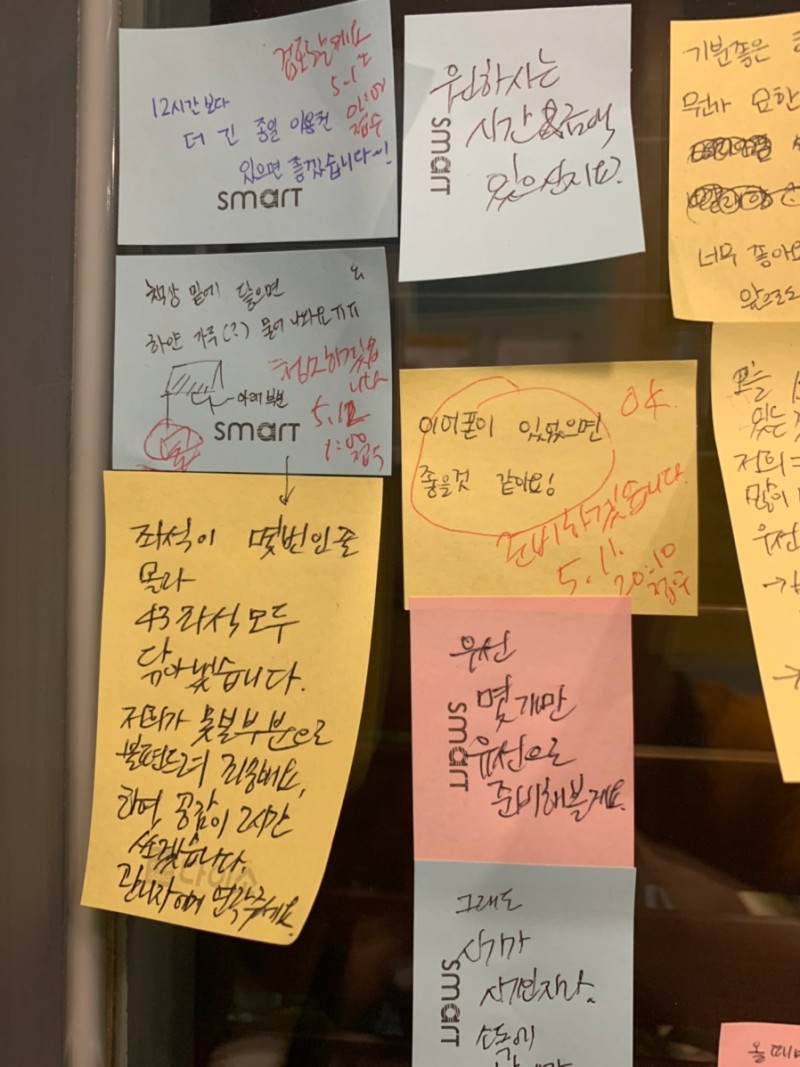 검토할게요
5.12
01:00
접수
12시간 보다
더 긴 종일 이용권
있으면 좋겠습니다~!
smart
원하시는
시간&금액
있으신지요?
smart
책상 밑에 닿으면
하얀 가루(?) 묻어 나와요ㅠㅠ
아래 부분
smart
5.12
1:00
접수
좌석이 몇번인줄
몰라
43좌석모두
닦아놨습니다.
저희가 못볼부분으로
불편드려 죄송해요,
하여 공감이 2시간
쏘겠습니다.
관리자에게 연락주세요.
이어폰이 있었으면
좋을것 같아요!
OK.
준비하겠습니다.
5.11.
20:10
접수
우선
몇개만
유선으로
준비해볼게요.
smart
그래도
시기가
시기인지라.
소독에
smart
기분좋은
뭔가 묘한
너무 좋아요
앞으로도
오늘
있는
저희
많이
우선
올때